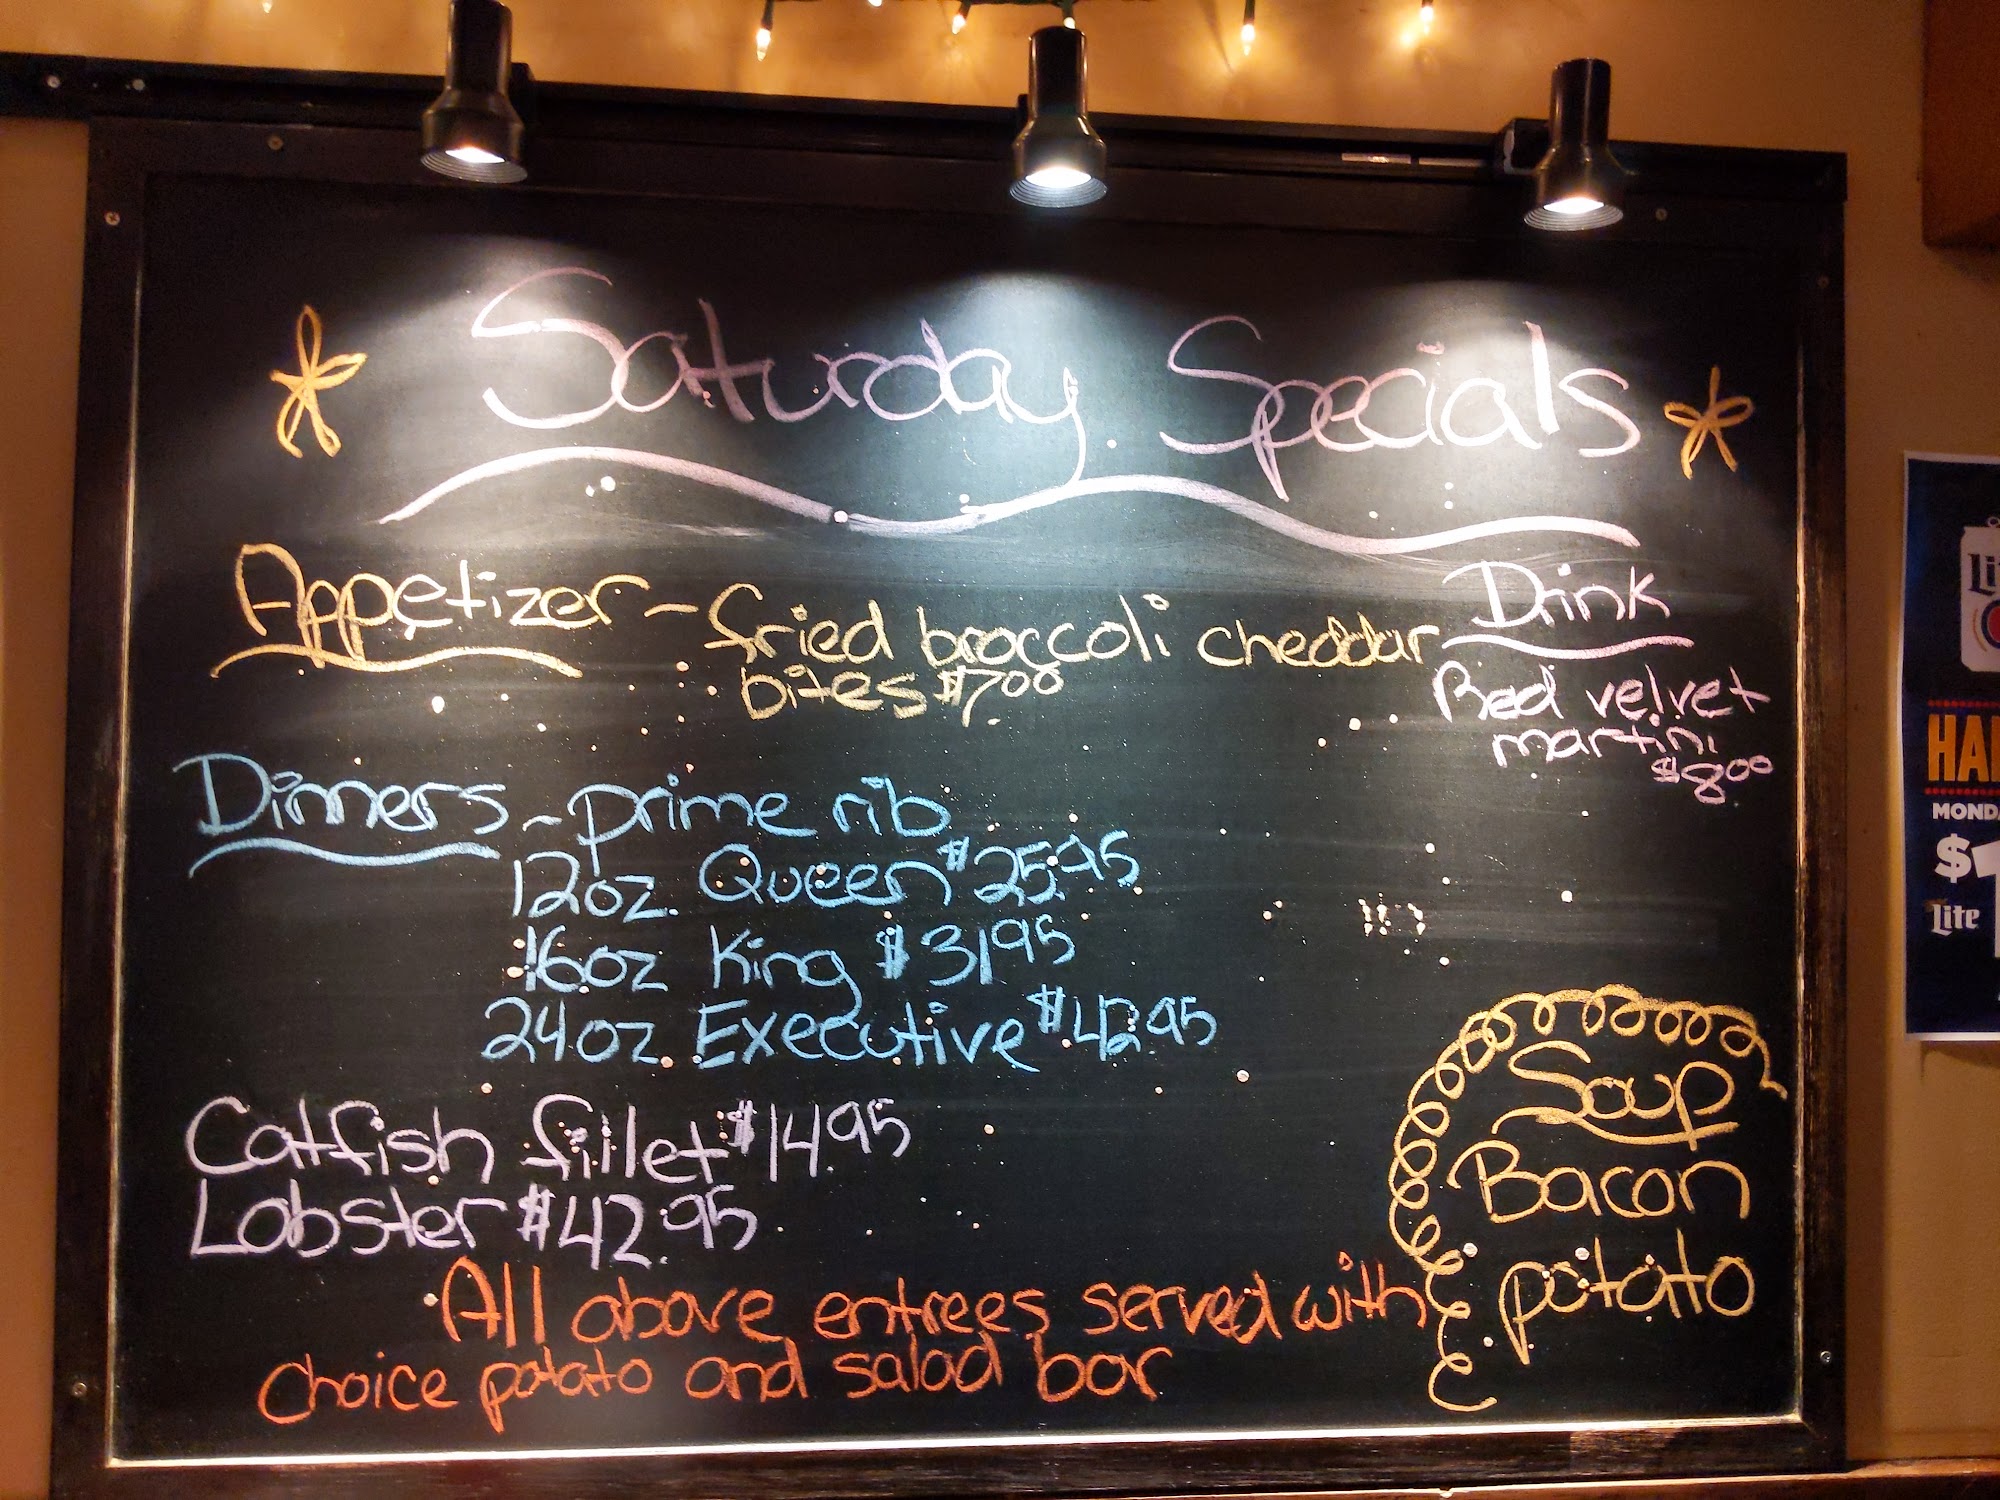 Saturday Specials
Appetizer - fried broccoli cheddar
bites $7.00
Drink
Red velvet
martini
$8.00
Dinners - prime rib
12oz. Queen $25.95
16oz King $31.95
24oz. Executive $42.95
Catfish fillet $14.95
Lobster $42.95
All above entrees served with
choice potato and salad bar
Soup
Bacon
potato
MOND
$1
Lite